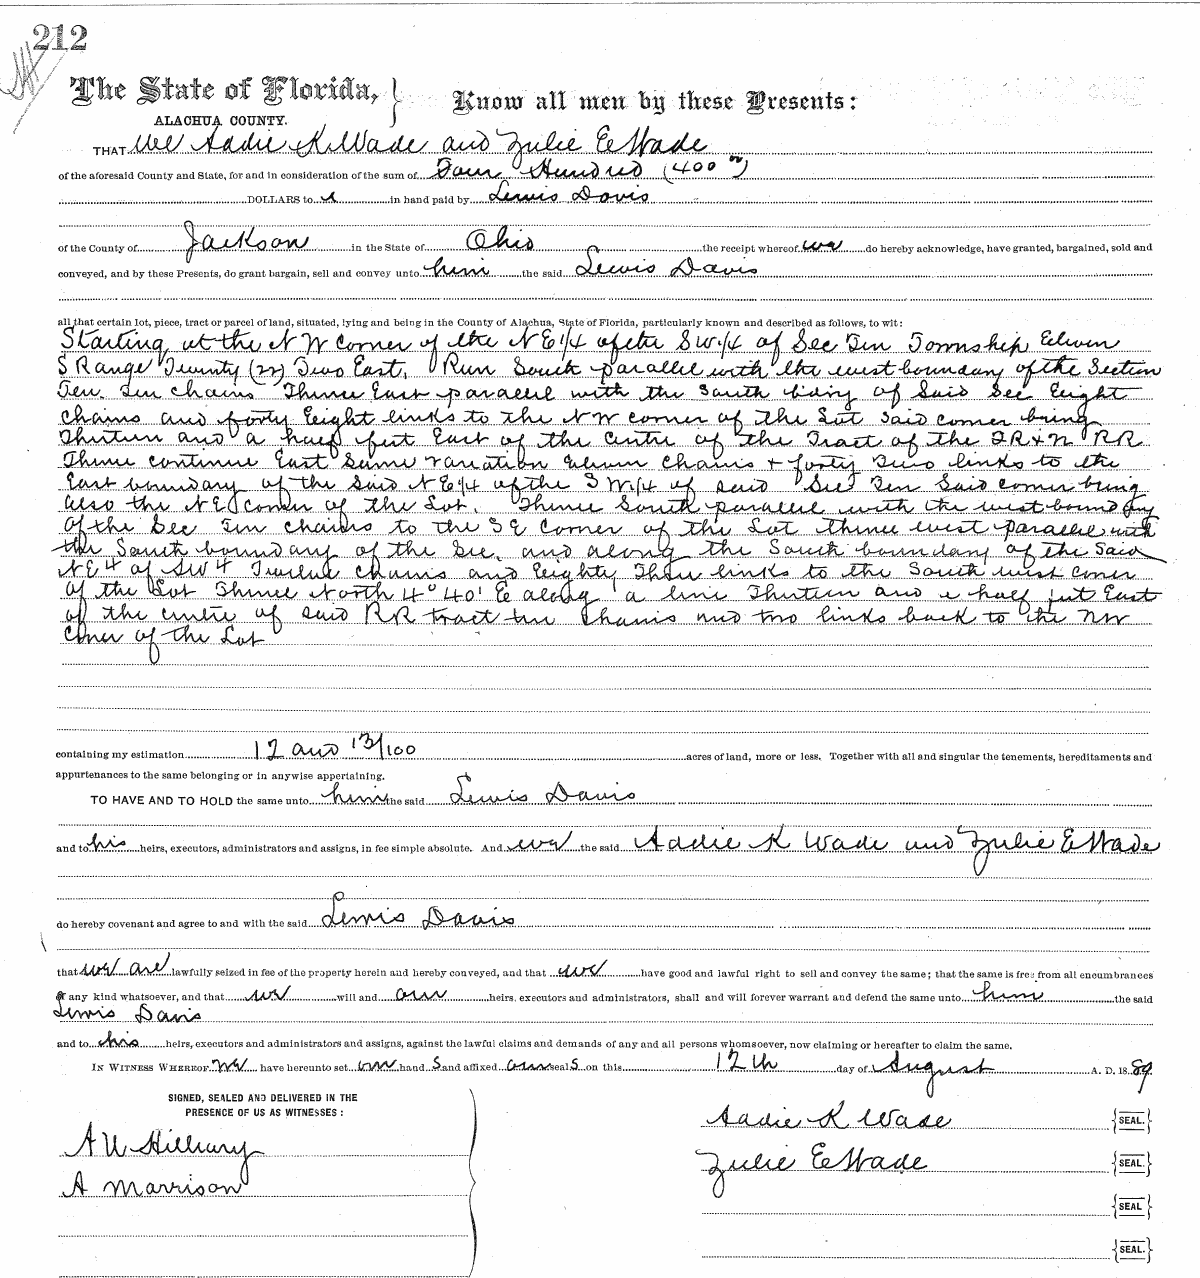 212
The State of Florida, } Know all men by these Presents:
ALACHUA COUNTY.
THAT We Addie K Wade and Zulie E Wade
of the aforesaid County and State, for and in consideration of the sum of Four Hundred (400
DOLLARS to in hand paid by Lewis Davis
of the County of Jackson in the State of Ohio the receipt whereof we do hereby acknowledge, have granted, bargained, sold and
conveyed, and by these Presents, do grant bargain, sell and convey unto him the said Lewis Davis
all that certain lot, piece, tract or parcel of land, situated, lying and being in the County of Alachua, State of Florida, particularly known and described as follows, to wit:
Starting at the N W Corner of the N E 1/4 of the S W 1/4 of Sec Ten Township Eleven
S Range Twenty (22) Two East. Run South parallel with the west boundary of the Section
Ten. Ten chains Thence East parallel with the South bdry of Said Sec Eight
chains and forty Eight links to the N W corner of the Lot Said corner being
Thirteen and a half feet East of the Centre of the Tract of the R R
Thence continue East Same variation Eleven Chains + forty Two links to the
East boundary of the Said N E 1/4 of the S W 1/4 of said Sec Ten Said corner being
also the N E corner of the Lot. Thence South parallel with the west boundary
of the Sec Ten chains to the S E Corner of the Lot thence west parallel with
the South boundary of the Sec. and along the South boundary of the Said
N E 4 of S W 4 Twelve Chains and Eighty Three links to the South west corner
of the Lot Thence North 4° 40' E along a line Thirteen and a half feet East
of the centre of said R R tract ten Chains and two links back to the N W
Corner of the Lot
containing my estimation 12 and 13/100 acres of land, more or less. Together with all and singular the tenements, hereditaments and
appurtenances to the same belonging or in anywise appertaining.
TO HAVE AND TO HOLD the same unto him the said Lewis Davis
and to his heirs, executors, administrators and assigns, in fee simple absolute. And we the said Addie K Wade and Zulie E Wade
do hereby covenant and agree to and with the said Lewis Davis
that we are lawfully seized in fee of the property herein and hereby conveyed, and that we have good and lawful right to sell and convey the same; that the same is free from all encumbrances
of any kind whatsoever, and that we will and our heirs, executors and administrators, shall and will forever warrant and defend the same unto him the said
Lewis Davis
and to his heirs, executors and administrators and assigns, against the lawful claims and demands of any and all persons whomsoever, now claiming or hereafter to claim the same.
IN WITNESS WHEREOF We have hereunto set our hand s and affixed our seal s on this 12th day of August A. D. 18 89
SIGNED, SEALED AND DELIVERED IN THE
PRESENCE OF US AS WITNESSES:
A W Hillhary
A Marrison
Addie K Wade {SEAL.}
Zulie E Wade {SEAL.}
{SEAL}
{SEAL.}